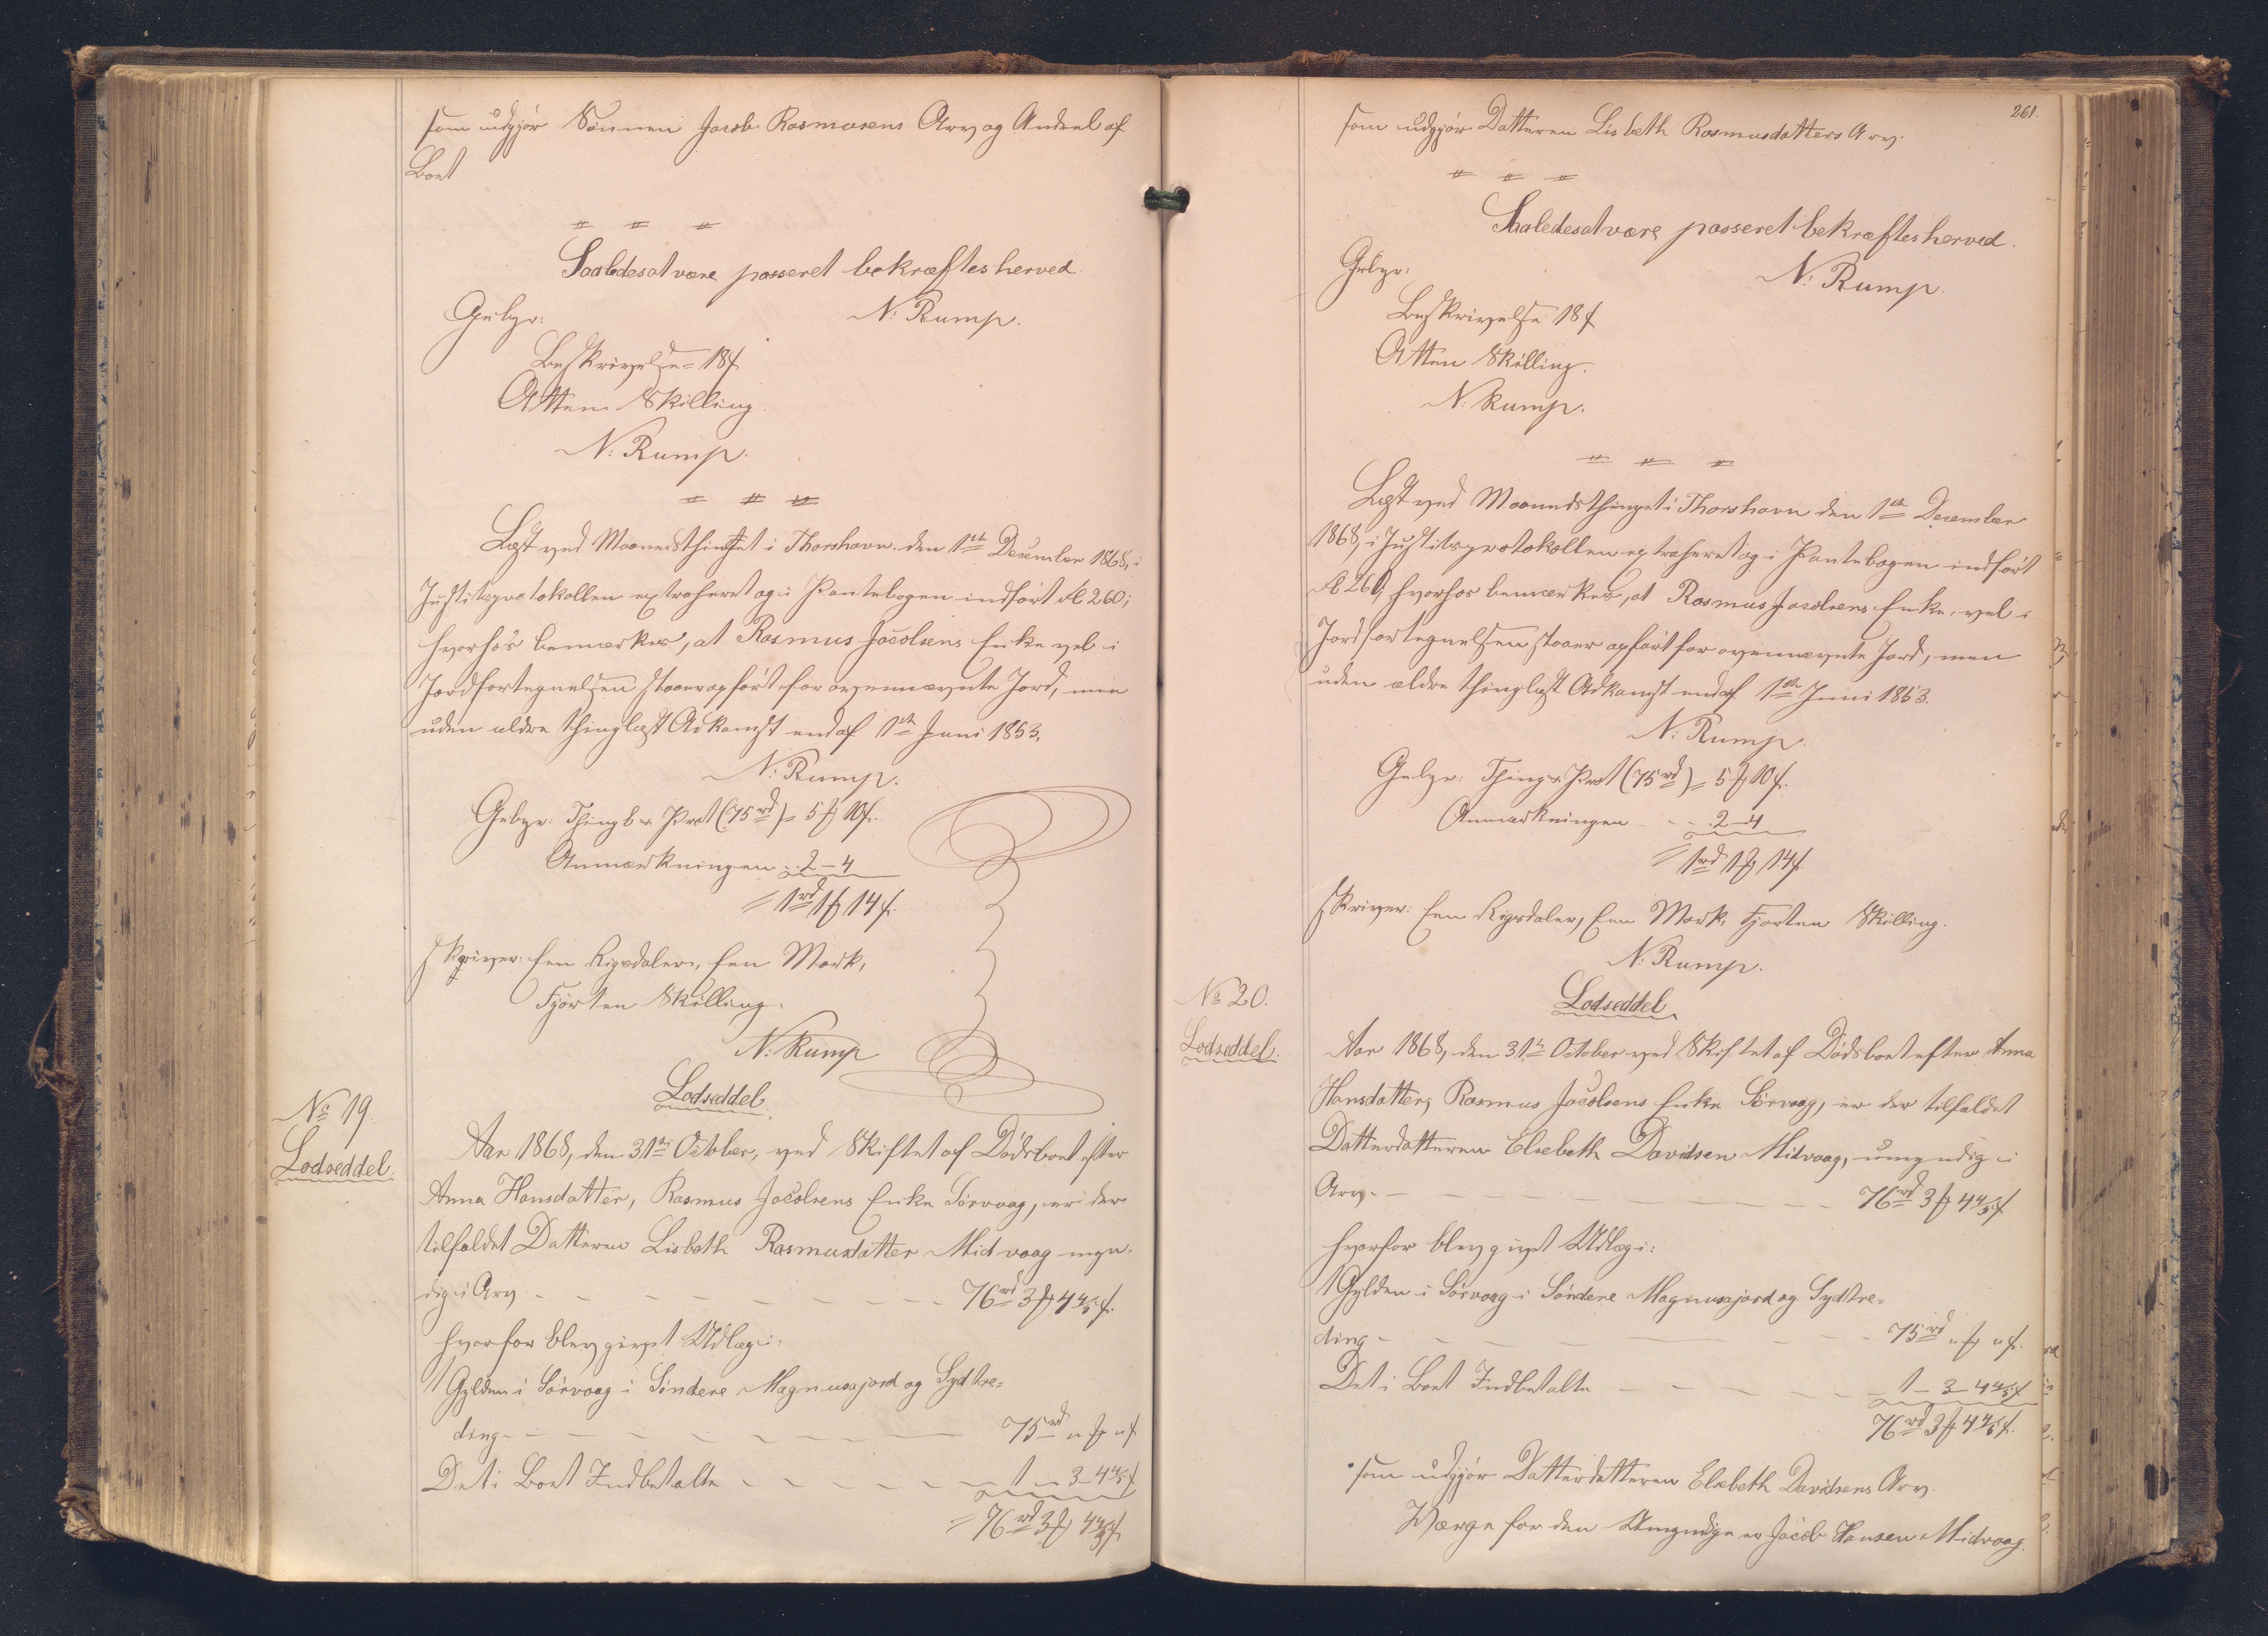 som udgjør Sønnen Jacob Rasmusens Arv og Andeel af
Boet
Saaledes at være passeret bekræftes herved
Gebyr:
N: Rump.
Beskrivelse = 18 s
Atten Skilling.
N: Rump.
Læst ved Maanedsthinget i Thorshavn den 1ste December 1868, i
Justitsprotokollen extraheret og i Pantebogen indført fol 260;
hvorhos bemærkes, at Rasmus Jacobsens Enke vel i
Jordfortegnelsen staaer opført for ovennævnte Jord, men
uden ældre thinglæst Adkomst end af 1ste Juni 1853.
N: Rump.
Gebyr: Thingl. & Prot (75 rd) = 5 ₰ 10 s.
Anmærkningen - 2 - 4
= 1 rd 1 ₰ 14 s.
skriver: Een Rigsdaler, Een Mark,
Fjorten Skilling.
N: Rump
Lodseddel
No 19.
Lodseddel.
Aar 1868, den 31te October, ved Skiftet af Dødsboet efter
Anna Hansdatter, Rasmus Jacobsens Enke Sørvaag, er der
tilfaldet Datteren Lisbeth Rasmusdatter Midvaag myn-
dig i Arv - - - 76 rd 3 ₰ 4 4/5 s.
hvorfor blev givet Udlæg i:
1 Gylden i Sørvaag i Søndere Magnusajord og Sydtre=
ding - - - 75 rd " ₰ " s
Det i Boet Indbetalte - - - 1 - 3 - 4 4/5 s
= 76 rd 3 ₰ 4 4/5 s
261.
som udgjør Datteren Lisbeth Rasmusdatters Arv.
Saaledes at være passeret bekræftes herved.
Gebyr:
N: Rump.
Beskrivelse 18 s
Atten Skilling.
N: Rump.
Læst ved Maanedsthinget i Thorshavn den 1ste December
1868, i Justitsprotokollen extraheret og i Pantebogen indført
fol 260; hvorhos bemærkes, at Rasmus Jacobsens Enke vel i
Jordfortegnelsen staaer opført for ovennævnte Jord, men
uden ældre thinglæst Adkomst end af 1ste Juni 1853.
N: Rump.
Gebyr: Thingl. & Prot (75 rd) = 5 ₰ 10 s.
Anmærkningen - - 2 - 4
= 1 rd 1 ₰ 14 s.
skriver: Een Rigsdaler, Een Mark, Fjorten Skilling.
N: Rump.
Lodseddel
No 20.
Lodseddel.
Aar 1868, den 31te October ved Skiftet af Dødsboet efter Anna
Hansdatter, Rasmus Jacobsens Enke Sørvaag, er der tilfaldet
Datterdatteren Elsebeth Davidsen Midvaag, umyndig i
Arv - - - 76 rd 3 ₰ 4 4/5 s
hvorfor blev givet Udlæg i:
1 Gylden i Sørvaag i Søndere Magnusajord og Sydtre=
ding - - - 75 rd " ₰ " s.
Det i Boet Indbetalte - - - 1 - 3 - 4 4/5 s
76 rd 3 ₰ 4 4/5 s.
som udgjør Datterdatteren Elsebeth Davidsens Arv.
Værge for den Umyndige er Jacob Hansen Midvaag.